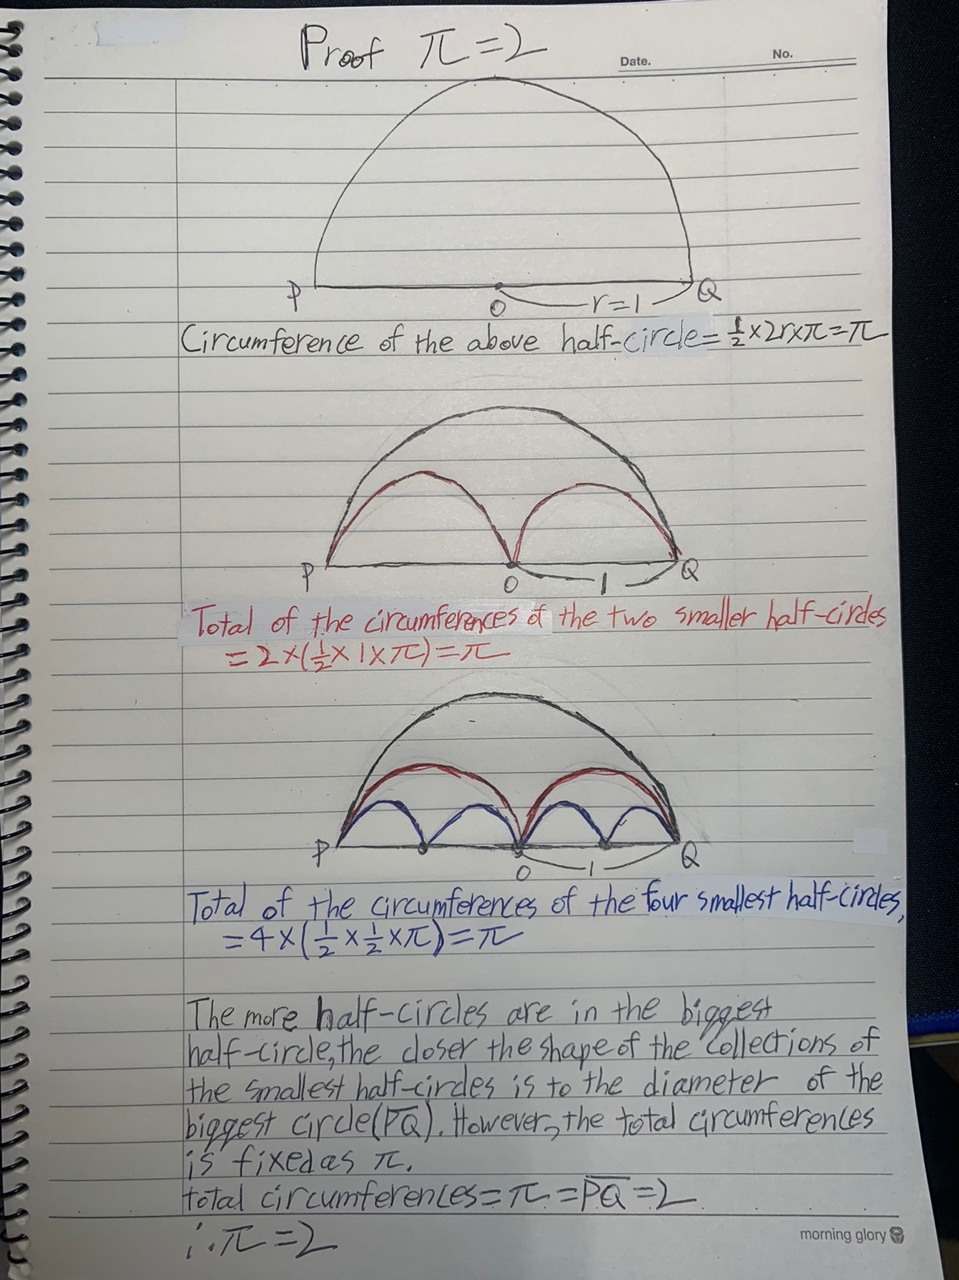 Proof π=2
Date.
No.
P
O
r=1
Q
Circumference of the above half-circle=½×2r×π=π
P
O
1
Q
Total of the circumferences of the two smaller half-circles
=2×(½×1×π)=π
P
O
1
Q
Total of the circumferences of the four smallest half-circles,
=4×(½×½×π)=π
The more half-circles are in the biggest
half-circle, the closer the shape of the collections of
the smallest half-circles is to the diameter of the
biggest circle(P̅Q̅). However, the total circumferences
is fixed as π.
total circumferences=π=P̅Q̅=2
∴π=2
morning glory